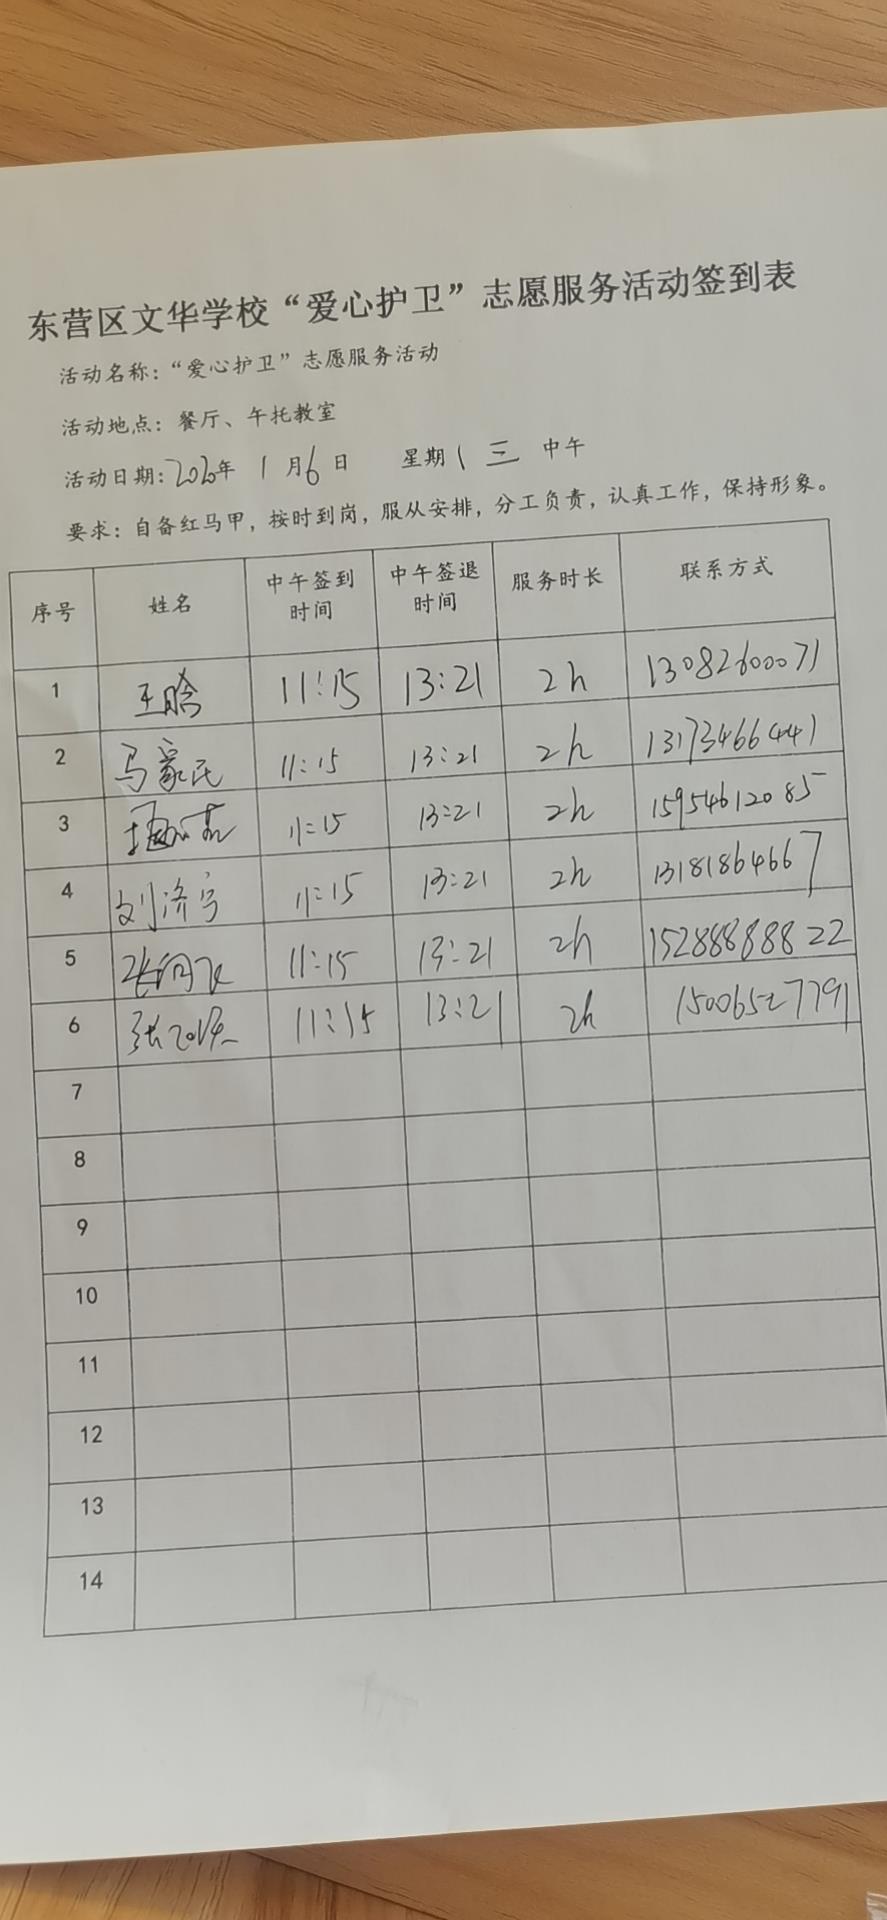 东营区文华学校“爱心护卫”志愿服务活动签到表
活动名称：“爱心护卫”志愿服务活动
活动地点：餐厅、午托教室
活动日期：2026年 1月6日 星期 三 中午
要求：自备红马甲，按时到岗，服从安排，分工负责，认真工作，保持形象。
序号 姓名 中午签到时间 中午签退时间 服务时长 联系方式
1 王晗 11:15 13:21 2h 13082600071
2 马家民 11:15 13:21 2h 13173466441
3 11:15 13:21 2h 15954612085
4 刘济宇 11:15 13:21 2h 13181864667
5 张向飞 11:15 13:21 2h 15288888822
6 张 11:15 13:21 2h 15006527791
7
8
9
10
11
12
13
14